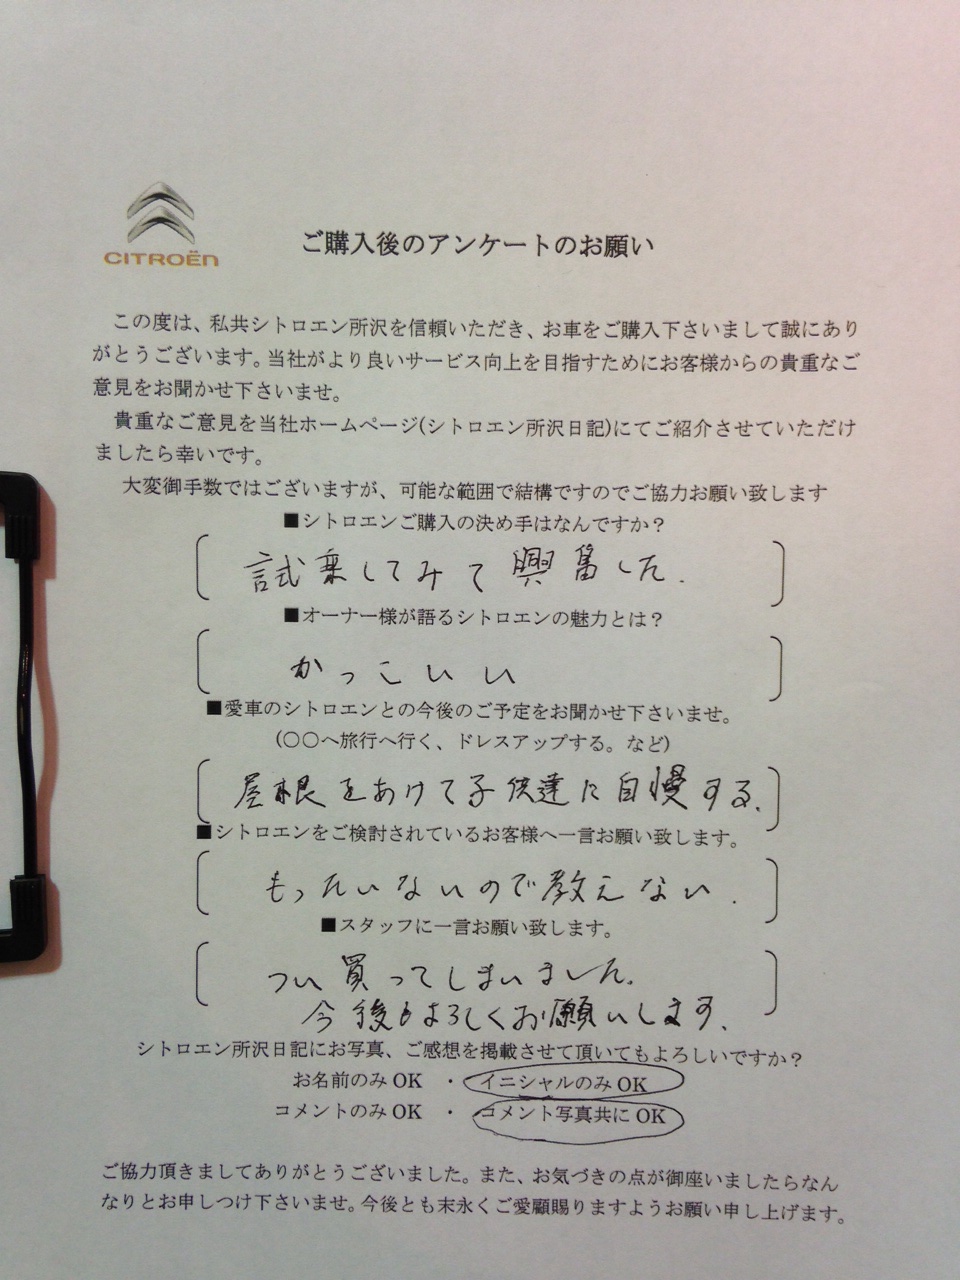 CITROËN
ご購入後のアンケートのお願い
この度は、私共シトロエン所沢を信頼いただき、お車をご購入下さいまして誠にあり
がとうございます。当社がより良いサービス向上を目指すためにお客様からの貴重なご
意見をお聞かせ下さいませ。
貴重なご意見を当社ホームページ(シトロエン所沢日記)にてご紹介させていただけ
ましたら幸いです。
大変御手数ではございますが、可能な範囲で結構ですのでご協力お願い致します
■シトロエンご購入の決め手はなんですか？
試乗してみて興奮した.
■オーナー様が語るシトロエンの魅力とは？
かっこいい
■愛車のシトロエンとの今後のご予定をお聞かせ下さいませ。
(○○へ旅行へ行く、ドレスアップする。など)
屋根をあけて子供達に自慢する.
■シトロエンをご検討されているお客様へ一言お願い致します。
もったいないので教えない.
■スタッフに一言お願い致します。
つい買ってしまいました.
今後もよろしくお願いします.
シトロエン所沢日記にお写真、ご感想を掲載させて頂いてもよろしいですか？
お名前のみ OK ・ イニシャルのみ OK
コメントのみ OK ・ コメント写真共に OK
ご協力頂きましてありがとうございました。また、お気づきの点が御座いましたらなん
なりとお申しつけ下さいませ。今後とも末永くご愛顧賜りますようお願い申し上げます。